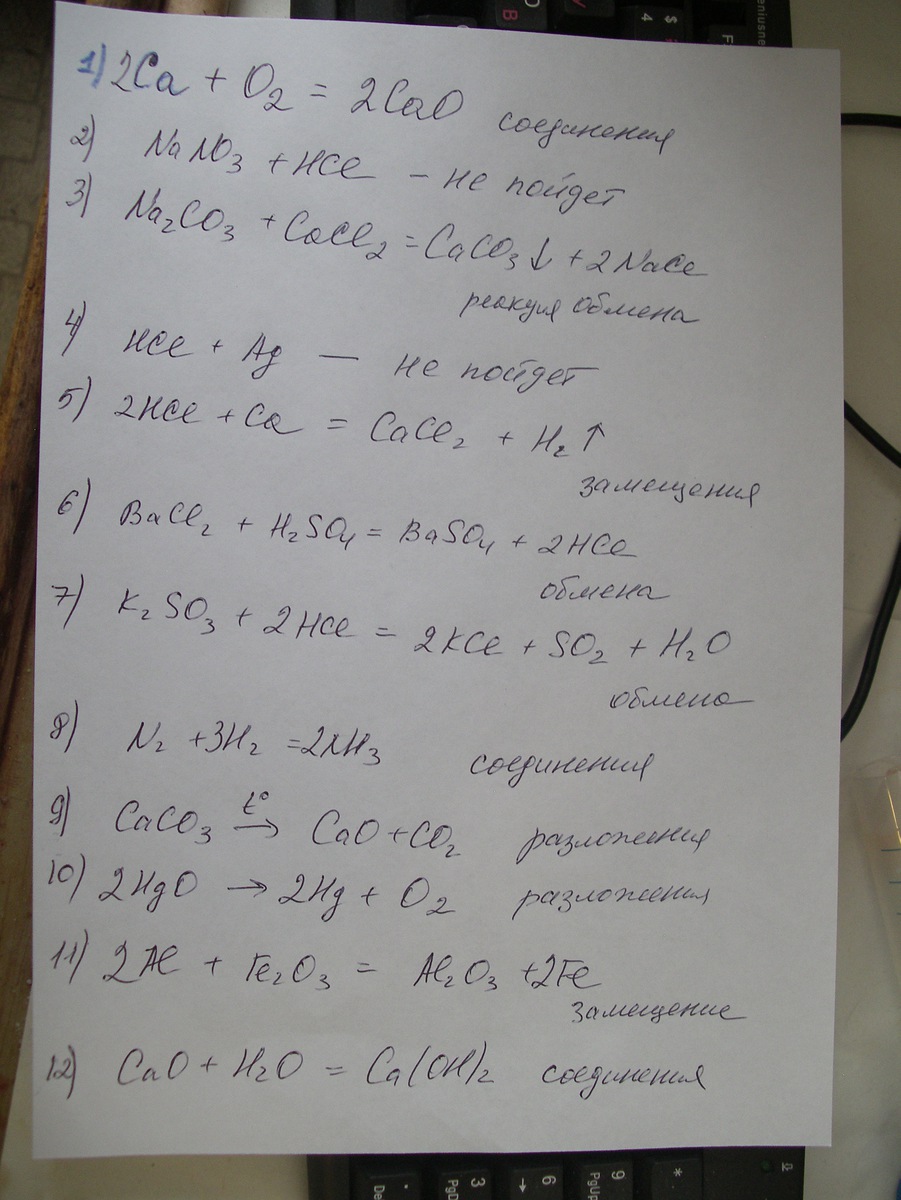 1) 2Ca + O2 = 2CaO соединения
2) NaNO3 + HCl - не пойдет
3) Na2CO3 + CaCl2 = CaCO3↓ + 2NaCl
реакция обмена
4) HCl + Ag — не пойдет
5) 2HCl + Ca = CaCl2 + H2↑
замещения
6) BaCl2 + H2SO4 = BaSO4 + 2HCl
обмена
7) K2SO3 + 2HCl = 2KCl + SO2 + H2O
обмена
8) N2 + 3H2 = 2NH3 соединения
9) CaCO3 t°→ CaO + CO2 разложения
10) 2HgO → 2Hg + O2 разложения
11) 2Al + Fe2O3 = Al2O3 + 2Fe
замещение
12) CaO + H2O = Ca(OH)2 соединения